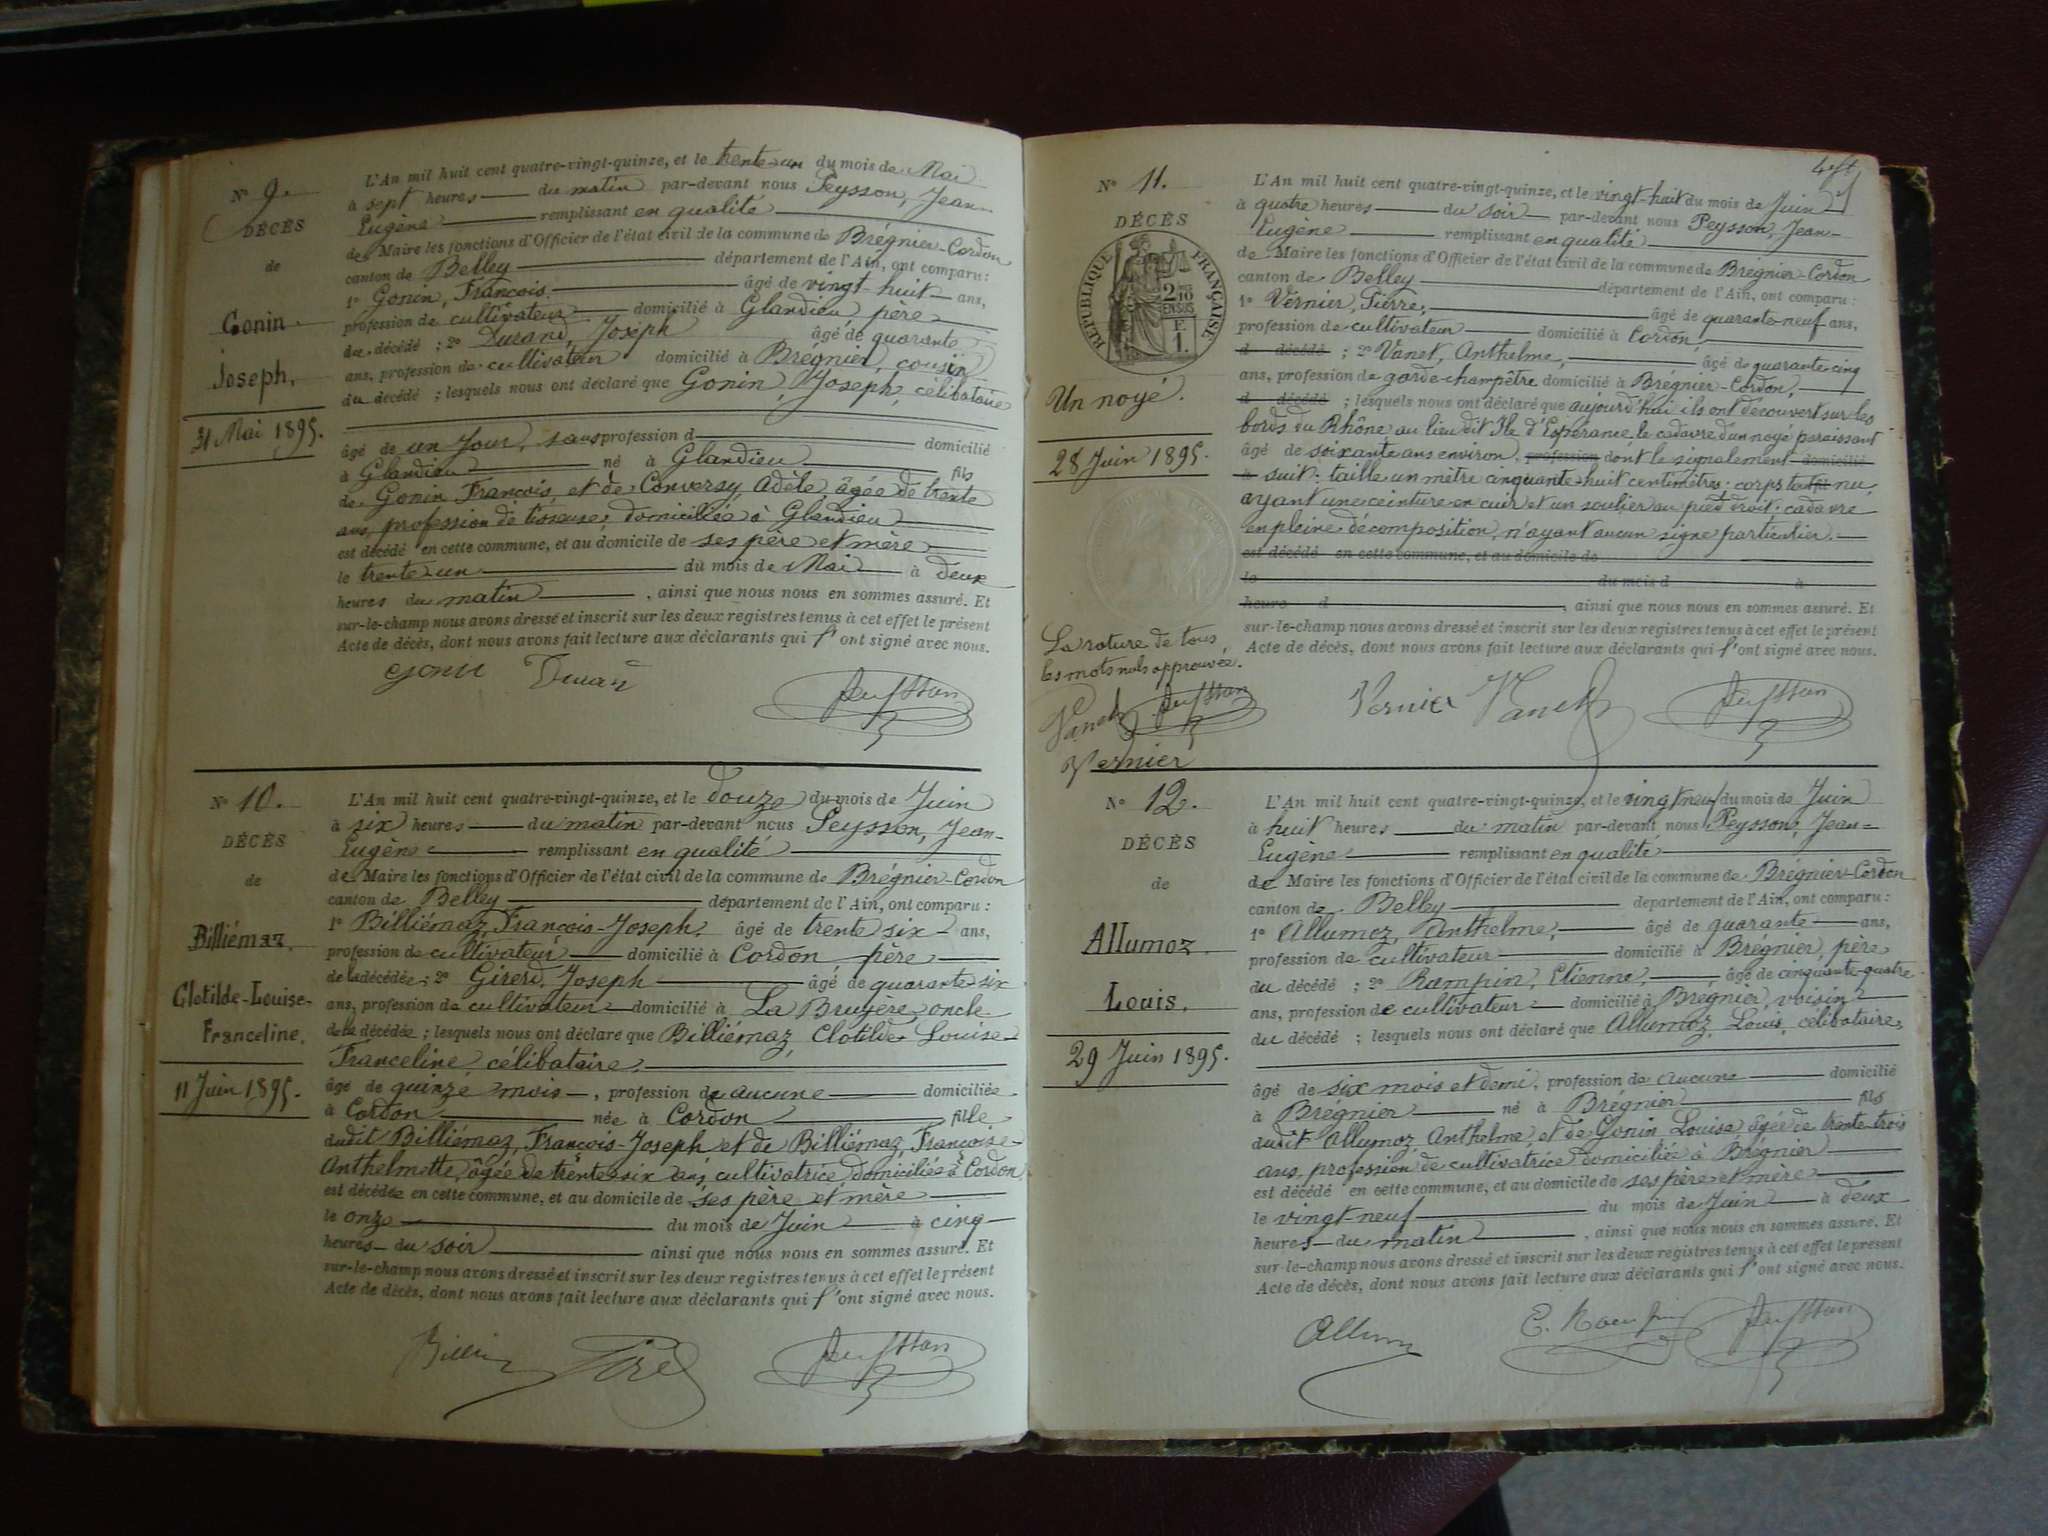 N° 9.
DÉCÈS
de
Gonin
Joseph,
31 Mai 1895.
L'An mil huit cent quatre-vingt-quinze, et le trente-un du mois de Mai
à sept heures du matin par-devant nous Peysson, Jean-
Eugène remplissant en qualité
de Maire les fonctions d'Officier de l'état civil de la commune de Brégnier-Cordon
canton de Belley département de l'Ain, ont comparu :
1° Gonin, François âgé de vingt-huit ans,
profession de cultivateur domicilié à Glandieu père
du décédé ; 2° Durand, Joseph âgé de quarante
ans, profession de cultivateur domicilié à Brégnier, cousin
du décédé ; lesquels nous ont déclaré que Gonin, Joseph, célibataire
âgé de un jour, sans profession d domicilié
à Glandieu né à Glandieu fils
de Gonin François, et de Conversy, Adèle, âgée de trente
ans, profession de tisseuse, domiciliée à Glandieu
est décédé en cette commune, et au domicile de ses père et mère
le trente-un du mois de Mai à deux
heures du matin , ainsi que nous nous en sommes assuré. Et
sur-le-champ nous avons dressé et inscrit sur les deux registres tenus à cet effet le présent
Acte de décès, dont nous avons fait lecture aux déclarants qui l'ont signé avec nous.
Gonin Durand Peysson
N° 10.
DÉCÈS
de
Billiémaz,
Clotilde-Louise-
Franceline,
11 Juin 1895.
L'An mil huit cent quatre-vingt-quinze, et le douze du mois de Juin
à six heures du matin par-devant nous Peysson, Jean-
Eugène remplissant en qualité
de Maire les fonctions d'Officier de l'état civil de la commune de Brégnier-Cordon
canton de Belley département de l'Ain, ont comparu :
1° Billiémaz, François-Joseph, âgé de trente six ans,
profession de cultivateur domicilié à Cordon père
de la décédée ; 2° Girerd, Joseph âgé de quarante-six
ans, profession de cultivateur domicilié à La Bruyère oncle
de la décédée ; lesquels nous ont déclaré que Billiémaz, Clotilde-Louise-
Franceline célibataire,
âgé de quinze mois , profession de aucune domiciliée
à Cordon née à Cordon fille
dudit Billiémaz, François-Joseph et de Billiémaz, Françoise-
Anthelmette, âgée de trente-six ans, cultivatrice domiciliée à Cordon
est décédée en cette commune, et au domicile de ses père et mère
le onze du mois de Juin à cinq
heures du soir ainsi que nous nous en sommes assuré. Et
sur-le-champ nous avons dressé et inscrit sur les deux registres tenus à cet effet le présent
Acte de décès, dont nous avons fait lecture aux déclarants qui l'ont signé avec nous.
Peysson
N° 11.
DÉCÈS
RÉPUBLIQUE FRANÇAISE
2/10
EN SUS
F.
1.
Un noyé.
28 Juin 1895.
La rature de tous
les mots nuls approuvée.
Vanel Peysson
Vernier
L'An mil huit cent quatre-vingt-quinze, et le vingt-huit du mois de Juin
à quatre heures du soir par-devant nous Peysson, Jean-
Eugène remplissant en qualité
de Maire les fonctions d'Officier de l'état civil de la commune de Brégnier-Cordon
canton de Belley département de l'Ain, ont comparu :
1° Vernier, Pierre, âgé de quarante-neuf ans,
profession de cultivateur domicilié à Cordon,
d décédé ; 2° Vanel, Anthelme, âgé de quarante cinq
ans, profession de garde-champêtre domicilié à Brégnier-Cordon,
d décédé ; lesquels nous ont déclaré que aujourd'hui ils ont découvert sur les
bords du Rhône au lieu dit Ile d'Espérance, le cadavre d'un noyé paraissant
âgé de soixante ans environ, profession dont le signalement domicilié
à suit : taille un mètre cinquante-huit centimètres : corps tout nu,
ayant une ceinture en cuir et un soulier au pied droit : cadavre
en pleine décomposition, n'ayant aucun signe particulier.
est décédé en cette commune, et au domicile de
le du mois d à
heure d , ainsi que nous nous en sommes assuré. Et
sur-le-champ nous avons dressé et inscrit sur les deux registres tenus à cet effet le présent
Acte de décès, dont nous avons fait lecture aux déclarants qui l'ont signé avec nous.
Vernier Vanel Peysson
N° 12.
DÉCÈS
de
Allumoz
Louis,
29 Juin 1895.
L'An mil huit cent quatre-vingt-quinze, et le vingt neuf du mois de Juin
à huit heures du matin par-devant nous Peysson, Jean-
Eugène remplissant en qualité
de Maire les fonctions d'Officier de l'état civil de la commune de Brégnier-Cordon
canton de Belley département de l'Ain, ont comparu :
1° Allumoz, Anthelme, âgé de quarante ans,
profession de cultivateur domicilié à Brégnier, père
du décédé ; 2° Rampin, Etienne, âgé de cinquante-quatre
ans, profession de cultivateur domicilié à Brégnier, voisin
du décédé ; lesquels nous ont déclaré que Allumoz, Louis, célibataire,
âgé de six mois et demi, profession de aucune domicilié
à Brégnier né à Brégnier fils
dudit Allumoz, Anthelme, et de Gonin, Louise âgée de trente-trois
ans, profession de cultivatrice domiciliée à Brégnier
est décédé en cette commune, et au domicile de ses père et mère
le vingt-neuf du mois de Juin à deux
heures du matin , ainsi que nous nous en sommes assuré. Et
sur-le-champ nous avons dressé et inscrit sur les deux registres tenus à cet effet le présent
Acte de décès, dont nous avons fait lecture aux déclarants qui l'ont signé avec nous.
E. Rampin Peysson